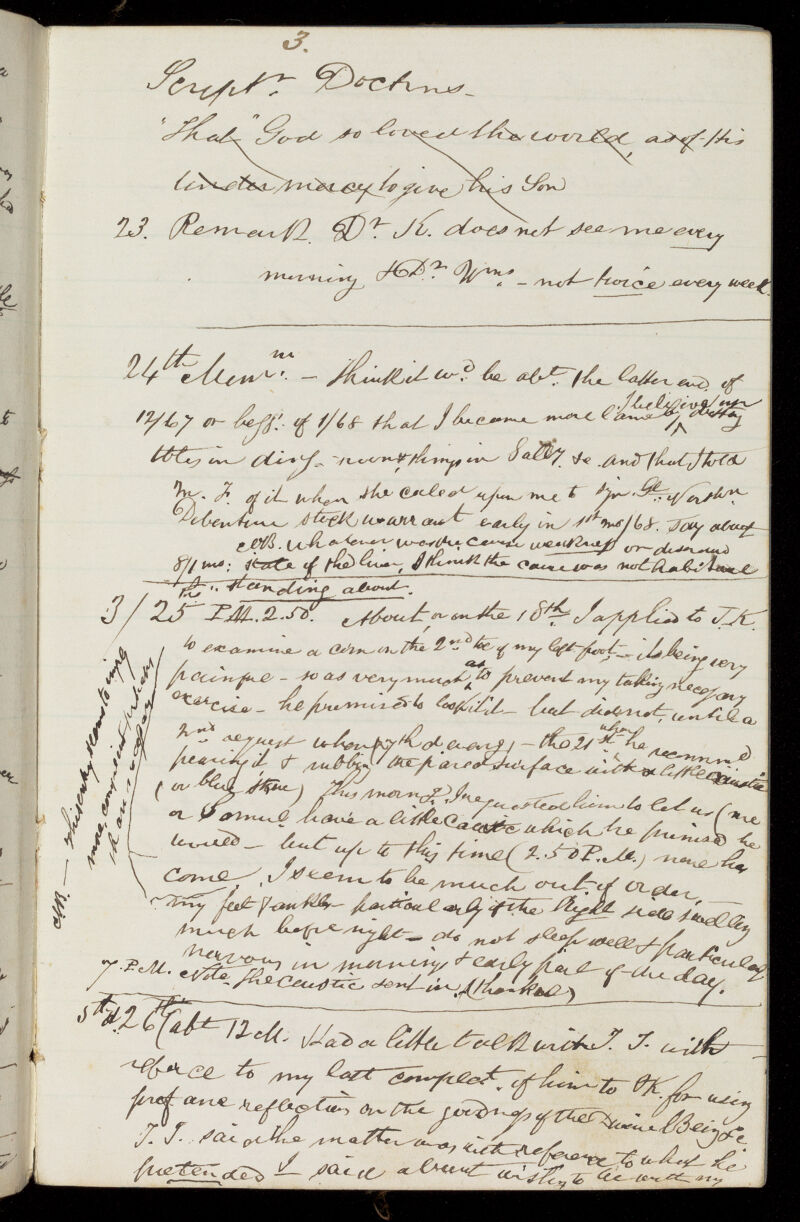 3.
Script.r Doctrns -
"That" God so loved the world, as of His
tender mercy to give his Son
23. Remark. Dr K. does not see me every
morning & Dr Wms. - not twice every week.
24th Memm. - Think it wd. be abt. the latter end of
12/67 or begg. of 1/68 that I became more lame I believe
in and that I told
of it when she called upon me to sign Gt. Western
Debenture Stock warrant early in 1st mo/68. Say about
NB. whatever was the cause weakness or
8/1 mo: state of the liver, I think the cause was not habitual
standing about.
3/25 P.M. 2.50. About, or on the 18th I applied to J.K.
to examine a corn on the 2nd toe of my left foot, - its being very
painful - so as very much as to prevent my taking necessary
exercise - he promised to look at it - but did not, until a
2nd request when - the 21st when he recommend
pearing it & rubbing the pared surface with a little caustic
(or blue stone) This morng. I requested him to let us (me
or Samuel have a little Caustic which he promised he
would - but up to this time (2.50 P.M.) none has
come. I seem to be much out of order, -
my feet & ankles particularly of the Right side swelling
much before night - do not sleep well & particularly
nervous in mornings & early part of the day.
7. P.M. Note. The caustic sent in (thanked)
NB. - This entry seems to imply
more complaint
than
5th d. 26th (abt 12 M. Had a little talk with T. T. with
refer.ce to my last complat. of him to K for using
profane reflection on the goodness of the Divine Being &c
T. T. said the matter was with reference to what he
pretended I said about wishing to with my